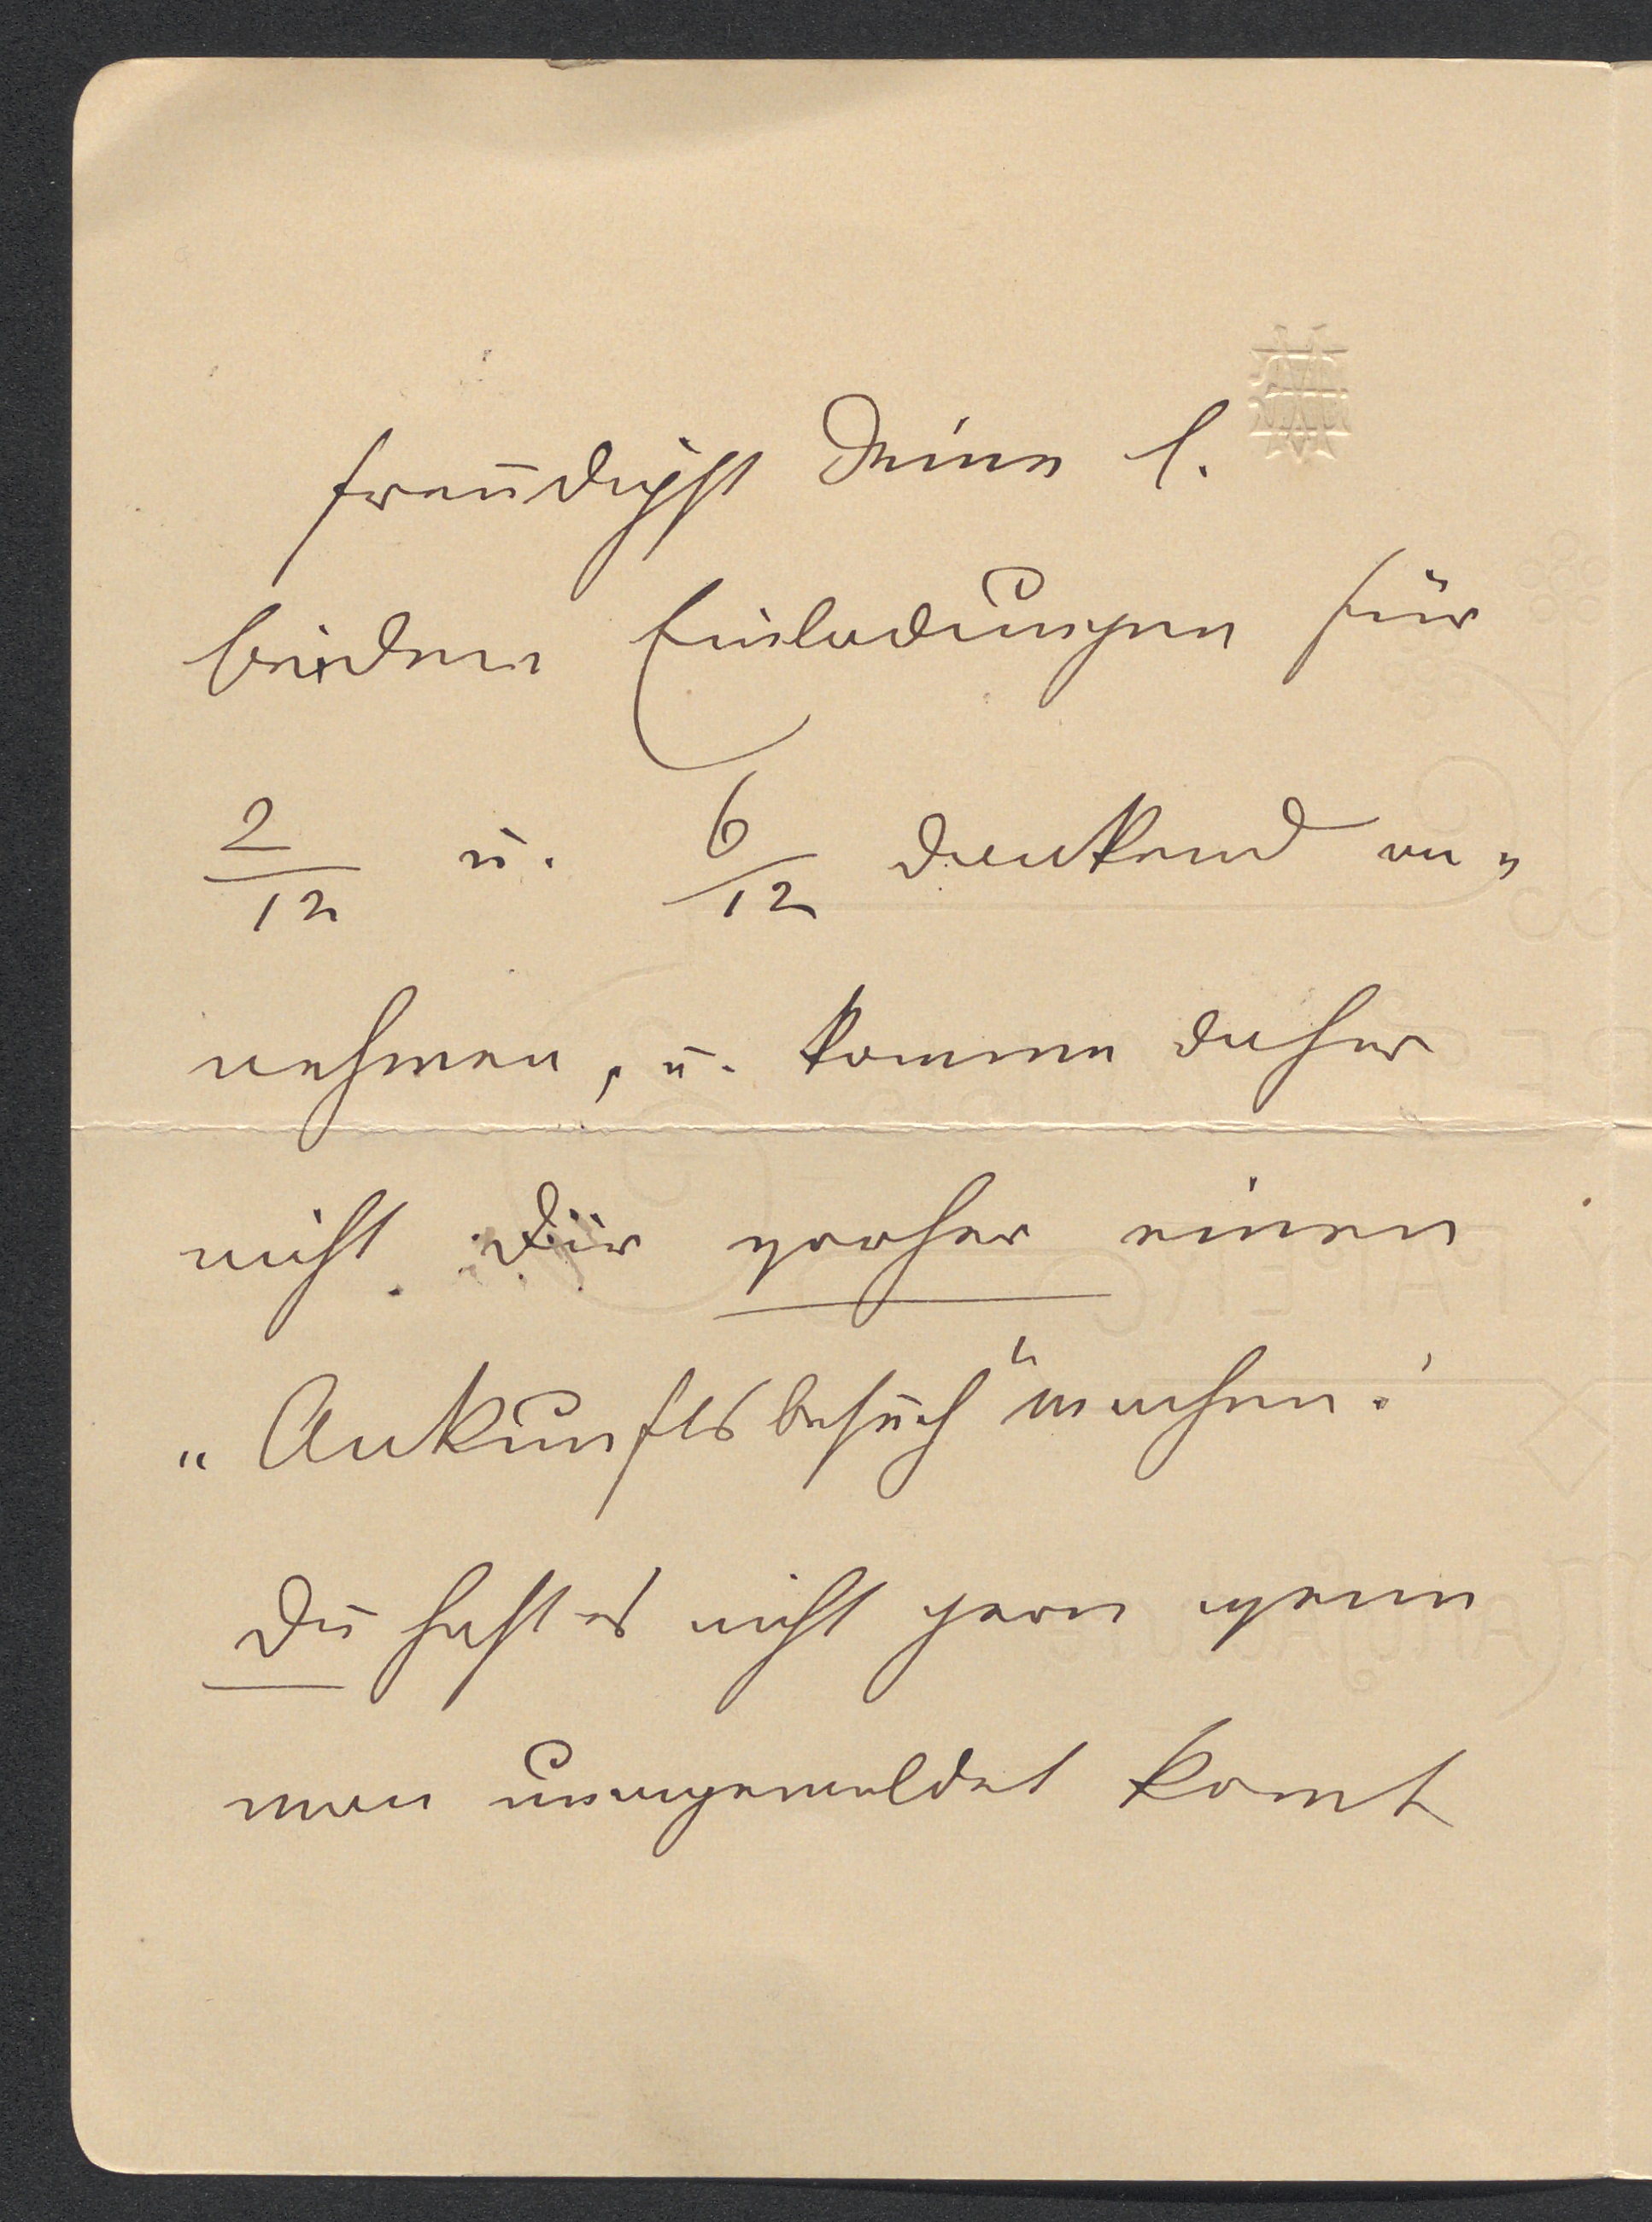 freudigst Deine l.
beiden Einladungen für
2/12 u. 6/12 dankend an-
nehmen, u. komme daher
nicht Dir vorher einen
„Ankunftsbesuch" machen!
Du hast es nicht gern wenn
man unangemeldet komt